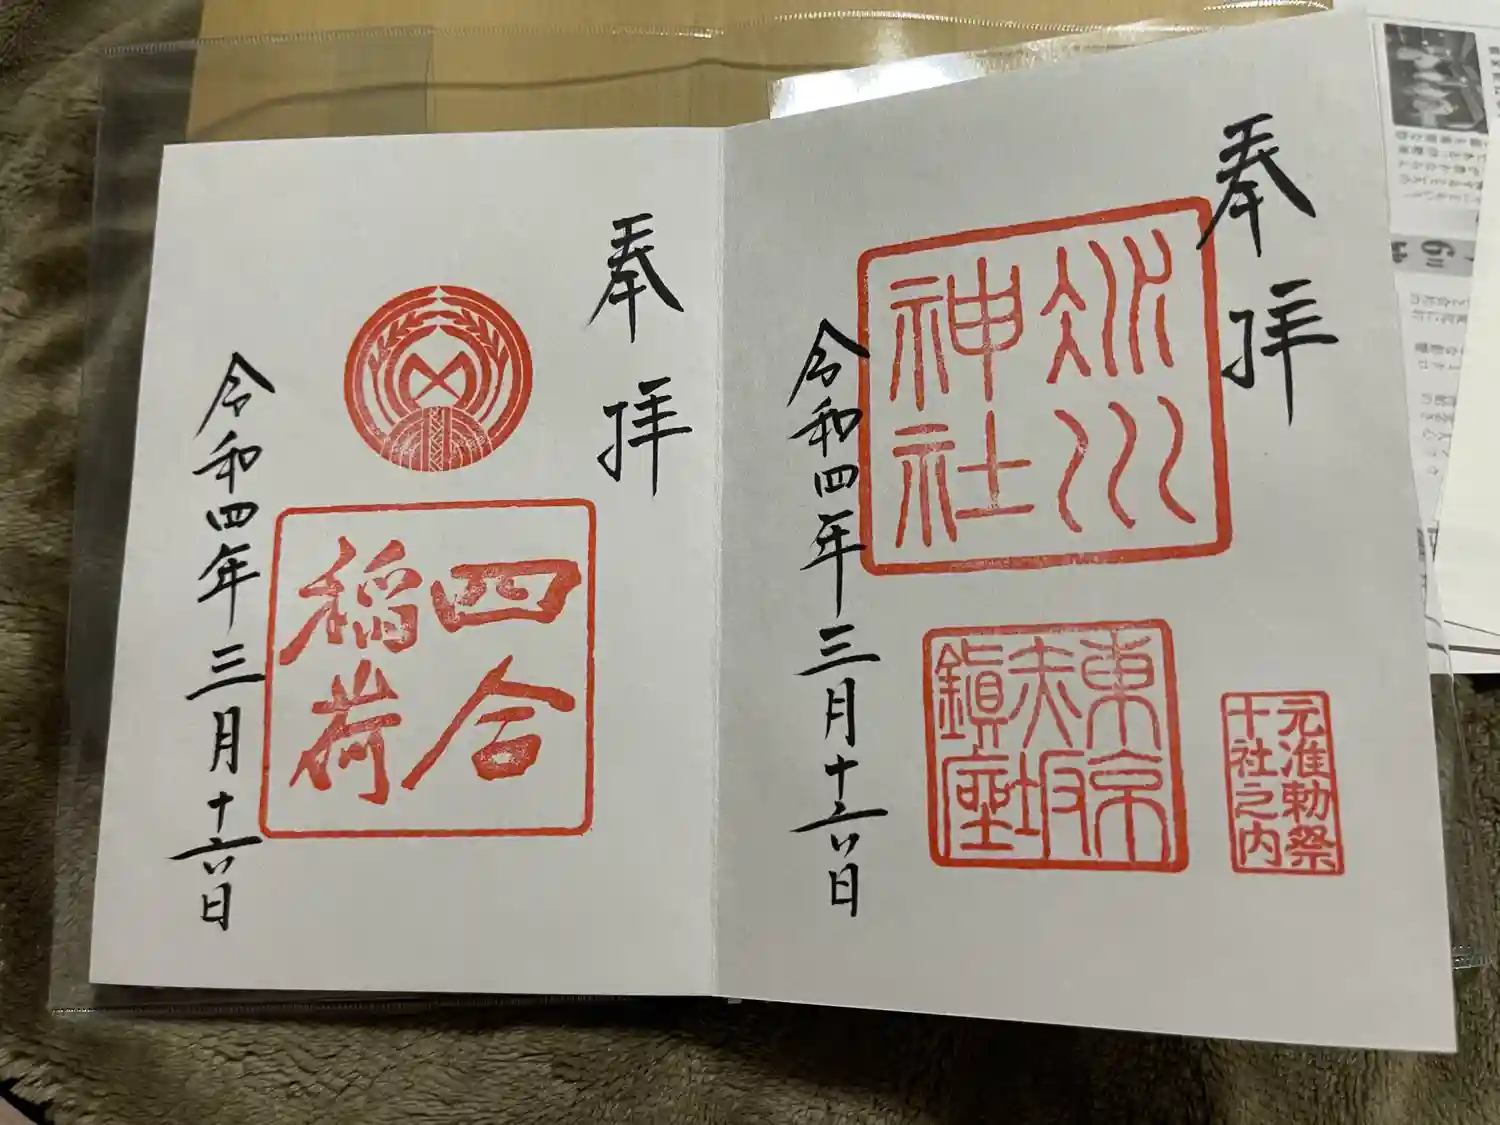 奉拝
氷川
神社
東京
赤坂
鎭座
元准勅祭
十社之内
令和四年三月十六日
奉拝
四合
稲荷
令和四年三月十六日